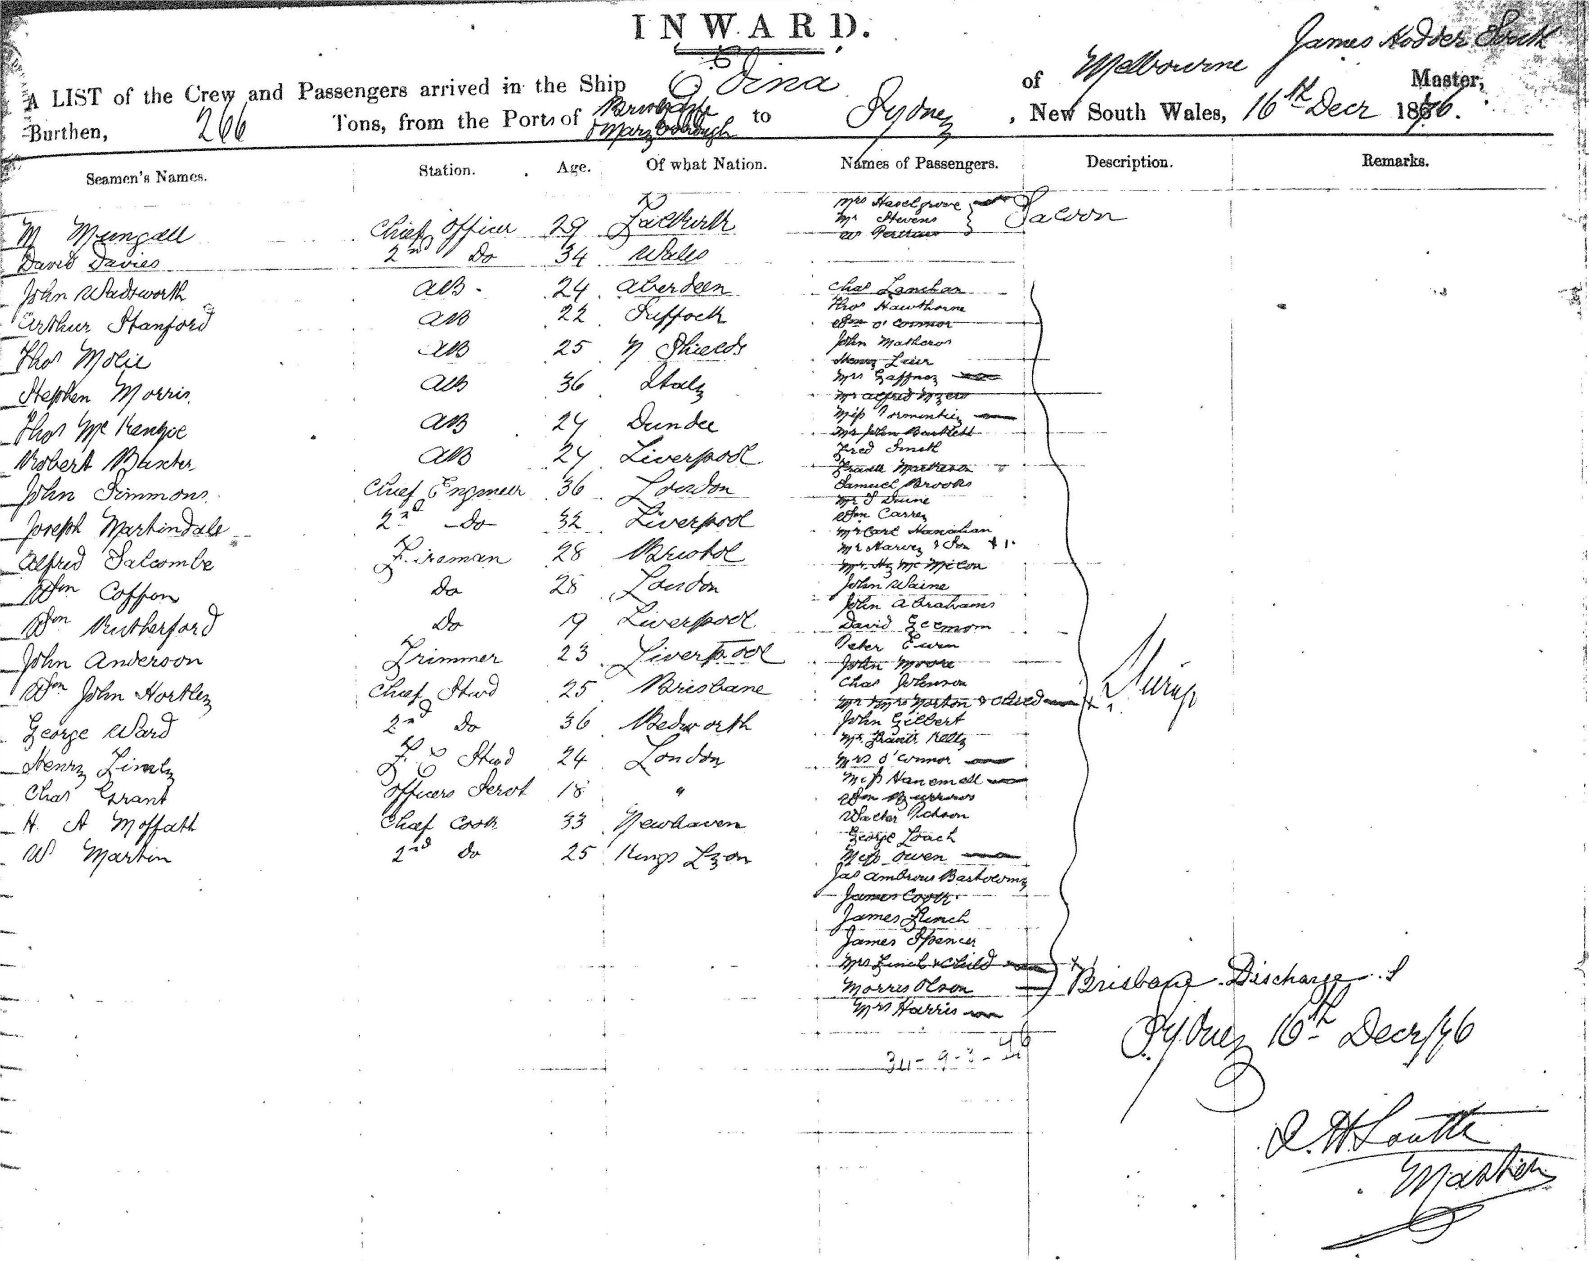 INWARD.
James Hodder South
A LIST of the Crew and Passengers arrived in the Ship Edina of Melbourne Master,
Burthen, 266 Tons, from the Ports of Brisbane & Maryborough to Sydney, New South Wales, 16th Decr 1876.
Seamen's Names. Station. Age. Of what Nation. Names of Passengers. Description. Remarks.
M Mungall Chief Officer 29 Falkirk
David Davies 2nd Do 34 Wales
John Wadsworth AB 24 Aberdeen
Arthur Stanford AB 22 Suffock
Thos Molie AB 25 N Shields
Stephen Morris AB 36 Italy
Thos McKenzie AB 24 Dundee
Robert Baxter AB 24 Liverpool
John Simmons Chief Engineer 36 London
Joseph Martindale 2nd Do 32 Liverpool
Alfred Salcombe Fireman 28 Bristol
Wm Coffon Do 28 London
Wm Rutherford Do 19 Liverpool
John Anderson Trimmer 23 Liverpool
Wm John Hortley Chief Stwd 25 Brisbane
George Ward 2nd Do 36 Bedworth
Henry F C Stwd 24 London
Chas Grant Officers Servt 18 "
H A Moffath Chief Cook 33 Newhaven
W Martin 2nd do 25 Kings Lynn
Mrs Haselgrove
Mr Stevens
W
Saloon
Chas Lenehan
Thos Hawthorne
Wm O'Connor
John Matheros
Henry Leier
Mrs Gaffney
Mr Alfred Myers
Miss
Mr John Bartlett
Fred Smith
Frank
Samuel Brooks
Mr S Dunne
Wm Carrey
Mr Carl Hanahan
Mr Harvey & Son + 1
Mr Hy McMillon
John Waine
John Abrahams
David
Peter Ewen
John Moore
Chas Johnson
Mr & Mrs Norton & Child
John Gilbert
Mr Frank Kelly
Mrs O'Connor
Miss
Wm Burrows
Walter
George Loach
Miss Owen
Jas Ambrose Bartholomy
James Cook
James Finch
James Spencer
Mrs Finch & Child
Morris Olson
Mrs Harris
34-9-3-46
Brisbane Discharge
Sydney 16th Decr/76
J. H. South
Master